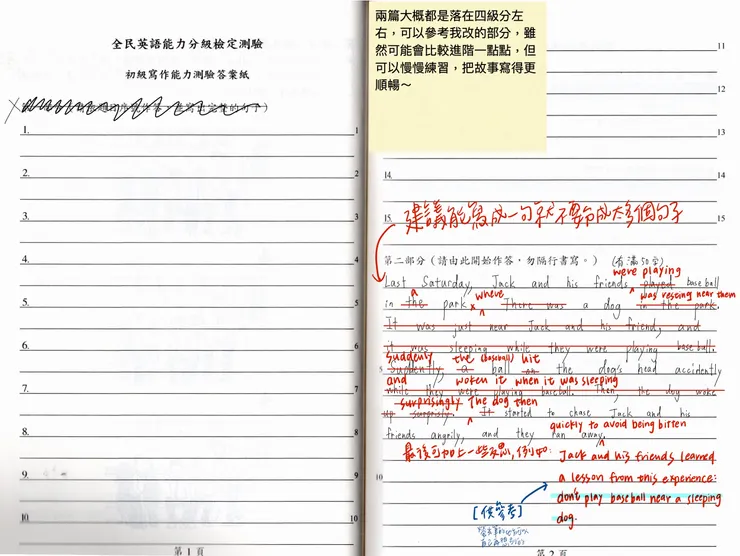 全民英語能力分級檢定測驗
初級寫作能力測驗答案紙
1.
1
2.
2
3.
3
4.
4
5.
5
6.
6
7.
7
8.
8
9.
9
10.
10
第 1 頁
兩篇大概都是落在四級分左
右，可以參考我改的部分，雖
然可能會比較進階一點點，但
可以慢慢練習，把故事寫得更
順暢～
11
12
13
14.
14
15.
15
建議能寫成一句就不要分成太多個句子
第二部分（請由此開始作答，勿隔行書寫。） (有滿50字)
were playing
Last Saturday, Jack and his friends played baseball
where was resting near them
in the park. There was a dog in the park.
It was just near Jack and his friend, and
it was sleeping while they were playing baseball.
suddenly the (baseball) hit
5 Suddenly, a ball on the dog's head accidently
and woken it when it was sleeping
while they were playing baseball. Then, the dog woke
surprisingly The dog then
up surprisly. It started to chase Jack and his
quickly to avoid being bitten
friends angrily, and they ran away.
最後可加上一些反思，例如:
Jack and his friends learned
10
a lesson from this experience:
don't play baseball near a sleeping
dog.
[供參考]
第 2 頁